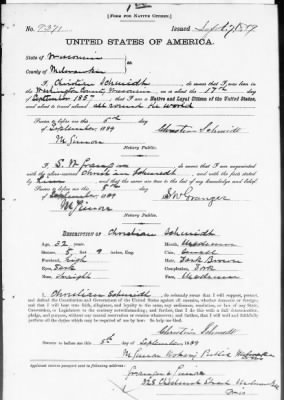 [FORM FOR NATIVE CITIZEN.]
No. 7371 Issued
UNITED STATES OF AMERICA.
State of Wisconsin
County of Milwaukee
I, Christian Schmidt, do swear that I was born in
Washington County, Wisconsin, on or about the 17th day of
September 1857, that I am a Native and Loyal Citizen of the United States,
and about to travel abroad all around the world
Christian Schmidt
Sworn to before me this 5th day
of September, 1889
Notary Public.
I, S W Granger, do swear that I am acquainted
with the above-named Christian Schmidt, and with the facts stated
by him and that the same are true to the best of my knowledge and belief.
Sworn to before me this 5th day
of September, 1889
S W Granger
Notary Public.
DESCRIPTION OF Christian Schmidt
Age, 32 years. Mouth, Medium
Stature, 5 feet 9 inches, Eng. Chin, Small
Forehead, High Hair, Dark Brown
Eyes, Dark Complexion, Dark
Nose, Straight Face, Medium
I, Christian Schmidt, do solemnly swear that I will support, protect,
and defend the Constitution and Government of the United States against all enemies, whether domestic or foreign;
and that I will bear true faith, allegiance, and loyalty to the same, any ordinance, resolution, or law of any State,
Convention, or Legislature to the contrary notwithstanding; and further, that I do this with a full determination,
pledge, and purpose, without any mental reservation or evasion whatsoever; and further, that I will well and faithfully
perform all the duties which may be required of me by law. So help me God.
Christian Schmidt
Sworn to before me this 5th day of September 1889
Notary Public
Applicant desires passport sent to following address: